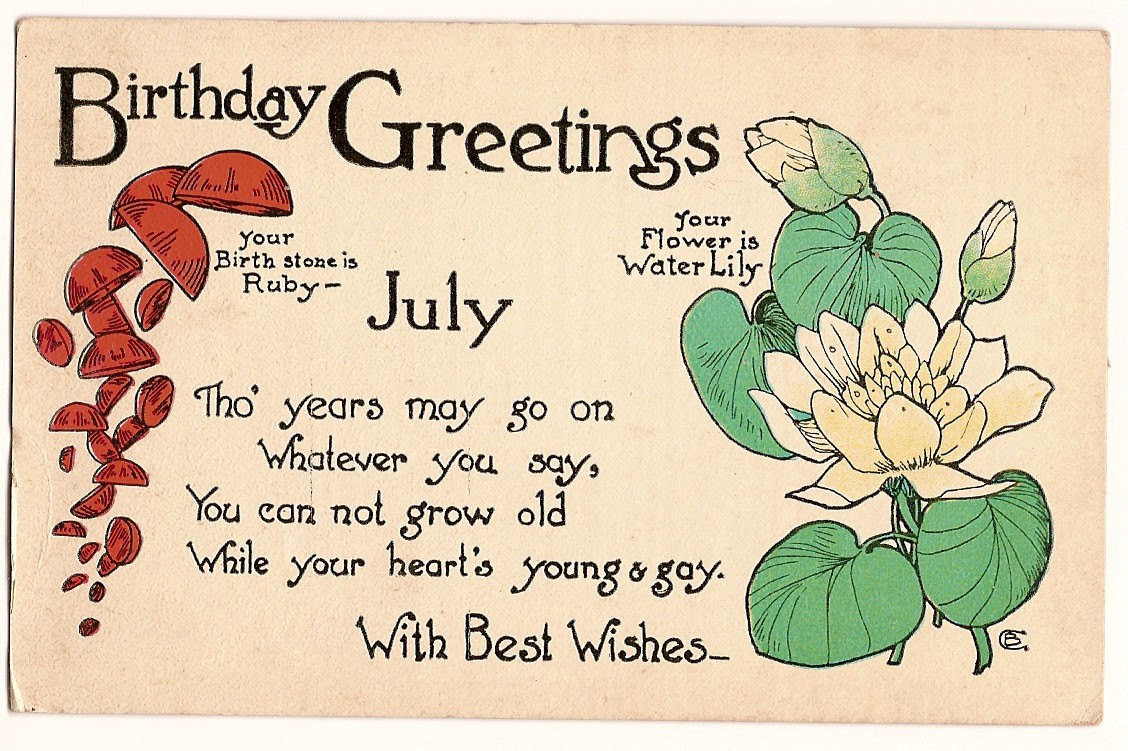 Birthday Greetings
Your
Birth stone is
Ruby–
Your
Flower is
Water Lily
July
Tho' years may go on
Whatever you say,
You can not grow old
While your heart's young & gay.
With Best Wishes–